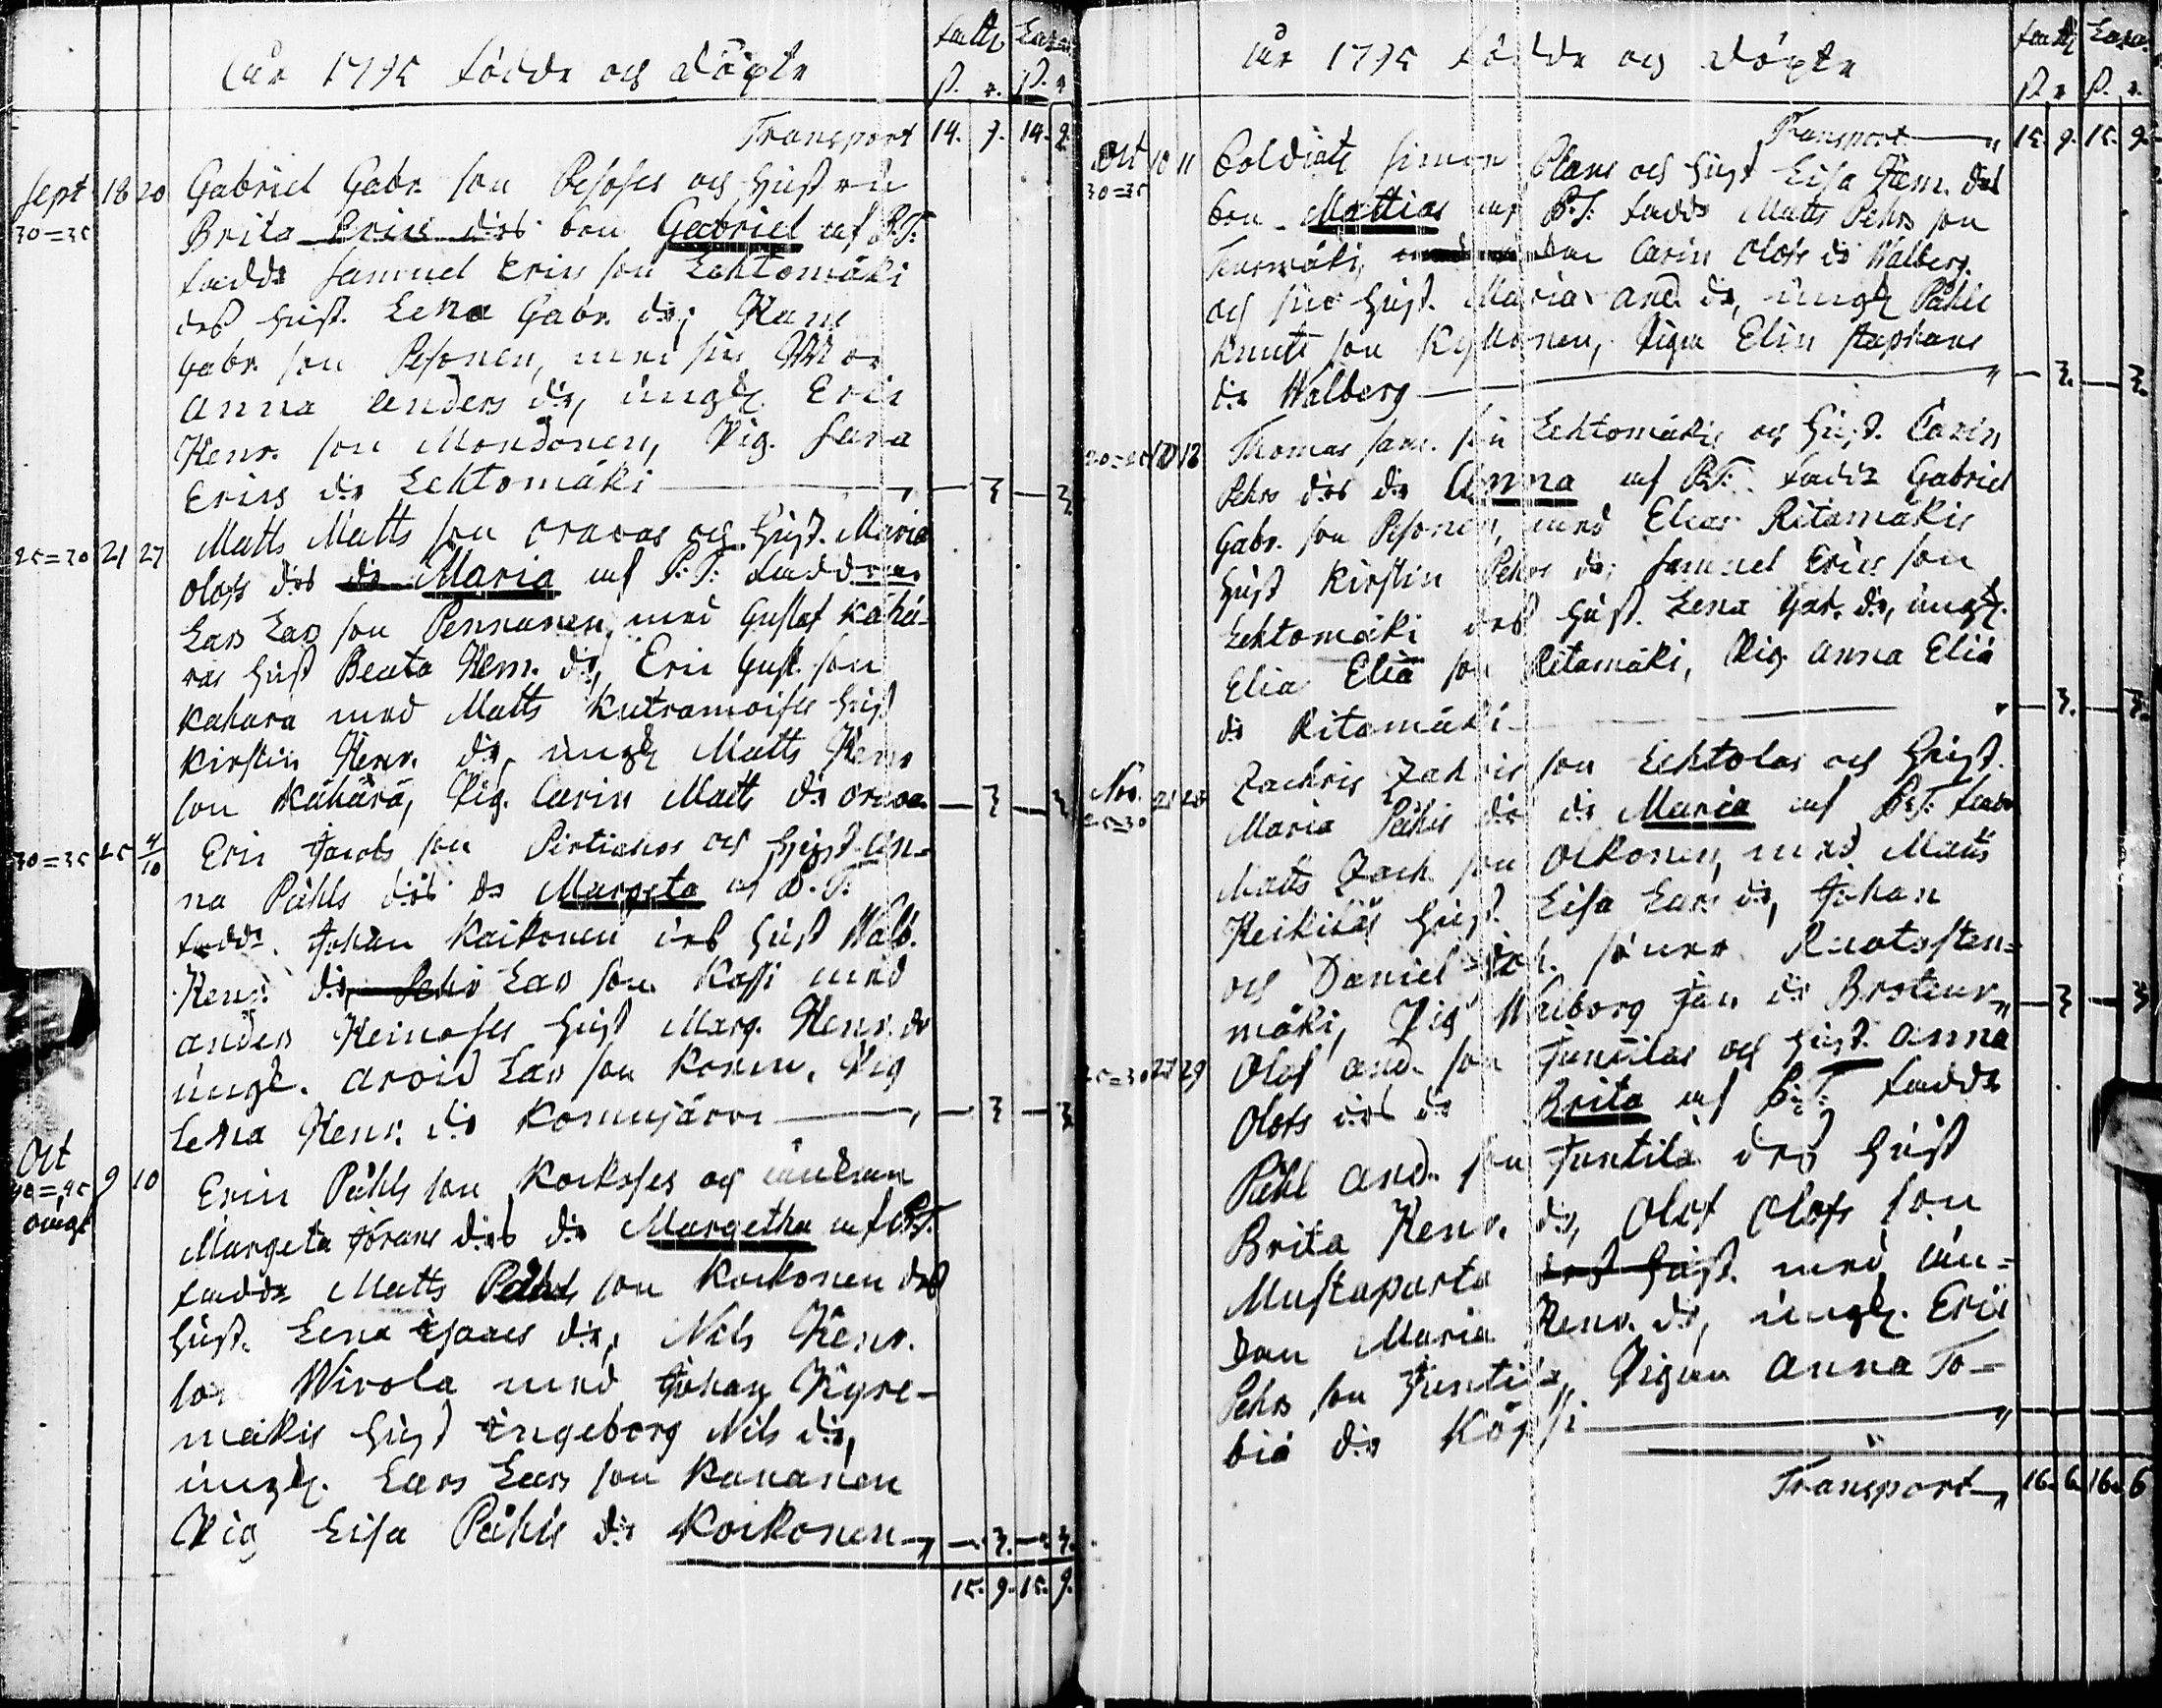 År 1795 födde och döpte
fatt. Cassa.
ß. r. ß. r
Transport 14. 9. 14. 9.
Sept 18 20 Gabriel Gabr. son Pesoses och hustru
30=35 Brita Erics dr: son Gabriel af B.T.
fadd: Samuel Erics son Lehtomäki
des hust. Lena Gabr. dr, Hans
Gabr. son Pesonen, med sin Mor
Anna Anders dr, ungk. Eric
Henr. son Mondonen, Pig. Sara
Erics dr Lehtomäki — 3 — 3
25=30 21 27 Matts Matts son Oravas och hust. Maria
Olofs dr: dr Maria af B:T: fadd
Lars Lars son Pennanen, med Gustaf Kähä-
räs hust Beata Henr. dr, Eric Gust. son
Kahara med Matts Kutramoises hust
Kirstin Henr. dr, ungk Matts Henr
son Kähärä, Pig. Carin Matts dr Orava — 3 — 3
30=35 25 4/10 Eric Jacobs son Pirtiahos och hust An-
na Påhls dr: dr Margeta af B.T:
fadd. Johan Kaikonen des hust Walb.
Henr. dr, Pehr Lars son Kassi med
Anders Heinoses hust Marg. Henr. dr
ungk. Arvid Lars son Konu, Pig
Lena Henr. dr Konnujärvi — 3 — 3
Oct
40=45 9 10 Eric Påhls son Koikoses och änkan
ougt Margeta Jörans dr: dr Margetha af B.T.
fadd Matts Påhls son Koikonen des
hust. Lena Isaacs dr, Nils Henr.
son Wirola med Johan Kyre-
mäkis hust Ingeborg Nils dr,
ungk. Lars Lars son Kananen
Pig Lisa Påhls dr Koikonen — 3. — 3.
15. 9. 15. 9.
År 1795 födde och döpte
fatt Cassa.
ß. r ß. r.
Transport 15. 9. 15. 9.
Oct 10 11 Soldats Simon Plans och hust Lisa Hem. dr
30=35 son Mattias af B:T: fadd Matts Pehrs son
Carin Olofs dr Walberg.
och hust. Maria And. dr, ungk Påhl
Knuts son Kyllönen, Pigan Elin Staphans
dr Walberg — 3. — 3.
Thomas Sam. son Lehtomäkis och hust. Carin
Pehrs dr: dr Anna af B.T: fadd Gabriel
Gabr. son Pesonen, med Elias Ritamäkis
hust Kirstin Pehrs dr, Samuel Erics son
Lehtomäki des hust. Lena Gab. dr, ungk.
Elia Elia son Ritamäki, Pig. Anna Elia
dr Ritamäki — 3. — 3.
Nov. Zachris Zachris son Lehtolas och hust.
25=30 Maria Påhls dr: dr Maria af B:T: fadd
Matts Zach. son Olkonen, med Matts
Heikiläs hust. Lisa Lars dr, Johan
och Daniel Joh. söner Ruotosten-
mäki, Pig Walborg Jan dr Brotenr — 3 — 3
25=30 27 29 Olof And. son Juntilas och hust. Anna
Olofs dr: dr Brita af B:T: fadd
Påhl And. son Juntila des hust
Brita Henr. dr, Olof Olofs son
Mustaparta des hust. med än-
kan Maria Henr. dr, ungk. Eric
Pehrs son Juntila, Pigan Anna To-
bia dr Köpsi —
Transport 16. 6. 16. 6